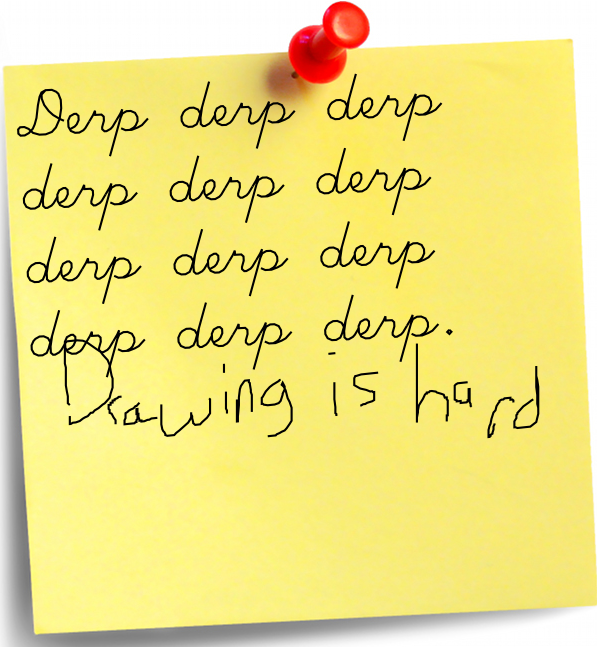 Derp derp derp
derp derp derp
derp derp derp
derp derp derp.
Drawing is hard